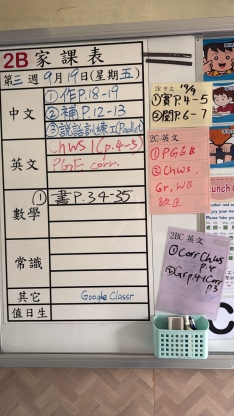 2B 家課表
第三週 9月19日(星期五)
中文
①作P.18-19
②補P.12-13
③說話訓練I(Padlet)
英文
Chws 1(p.4-5)
PGE corr.
數學
①書P.34-35
常識
其它
Google Classr
值日生
2B 中文 19/9
①實P.4-5
②閱P.6-7
2C 英文
①PGEB
②Chws.
Gr. WB
改正
2BC 英文
①Corr Chws
P.4
②Gr p.4 Corr
P.3